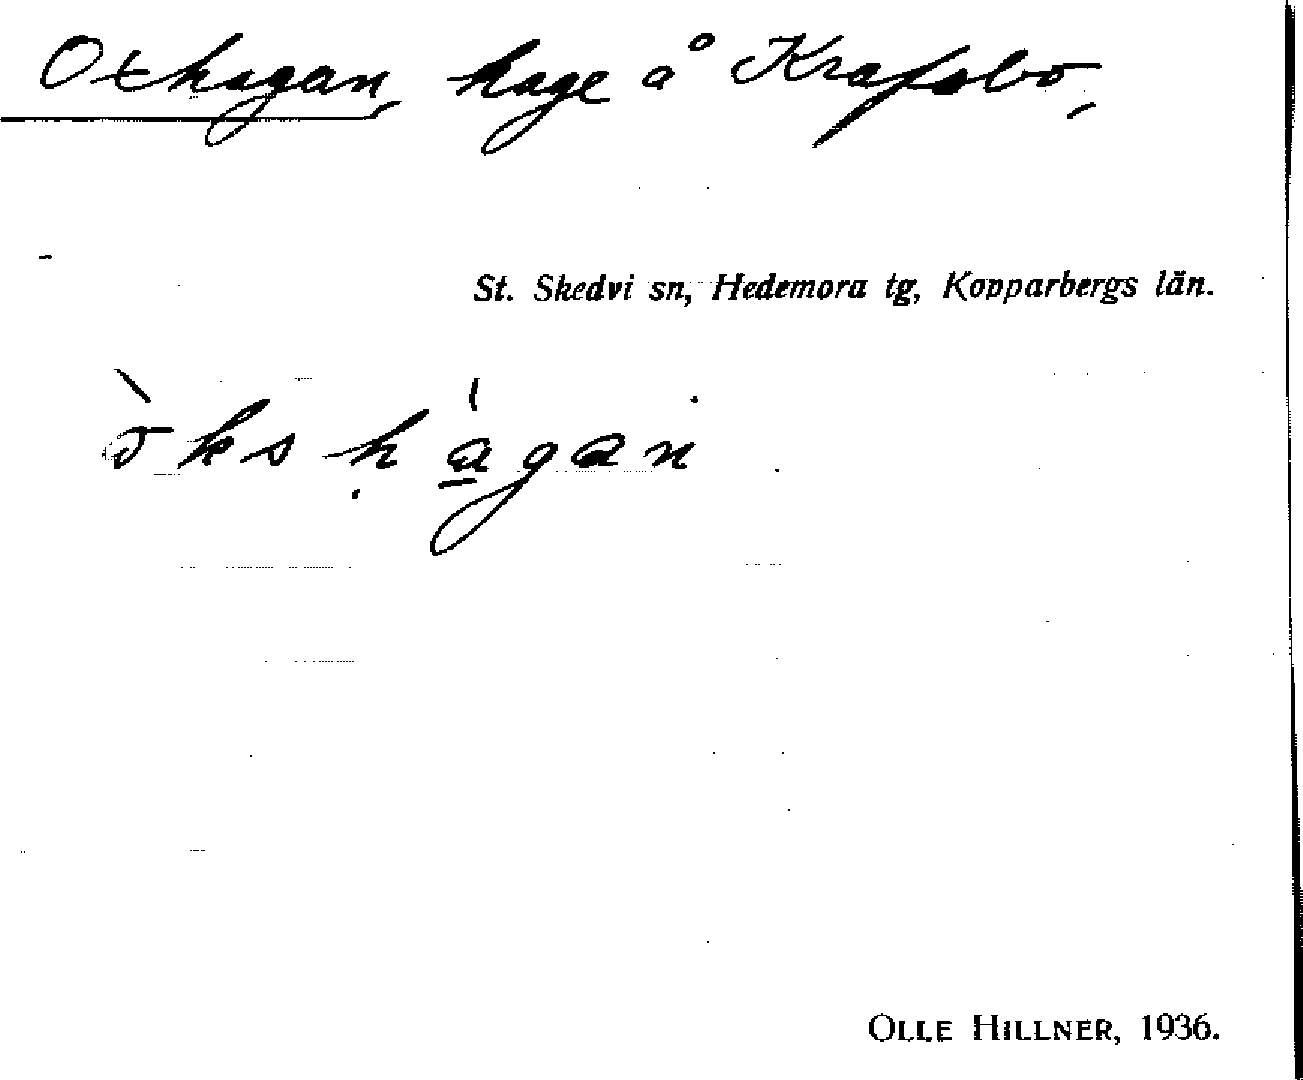 Oxhagan, hage å Krafsbo,
St. Skedvi sn, Hedemora tg, Kopparbergs län.
òkshágan
OLLE HILLNER, 1936.